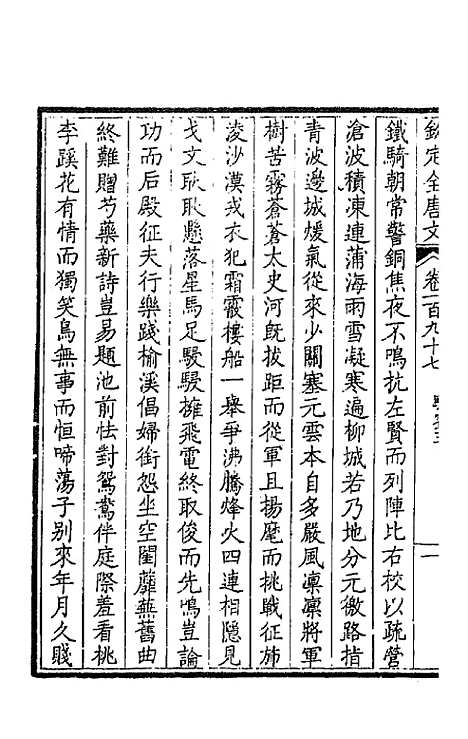 欽定全唐文 卷一百九十七 一
鐵騎朝常警銅焦夜不鳴抗左賢而列陣比右校以疏營
滄波積凍連蒲海雨雪凝寒遍柳城若乃地分元徼路指
青波邊城煖氣從來少關塞元雲本自多嚴風凛凛將軍
樹苦霧蒼蒼太史河旣拔距而從軍且揚麾而挑戰征斾
淩沙漠戎衣犯霜霰樓船一舉爭沸騰烽火四連相隱見
戈文耿耿懸落星馬足駸駸擁飛電終取俊而先鳴豈論
功而后殿征夫行樂踐榆溪倡婦銜怨坐空閨蘼蕪舊曲
終難贈芍藥新詩豈易題池前怯對鴛鴦伴庭際羞看桃
李蹊花有情而獨笑鳥無事而恒啼蕩子別來年月久賤